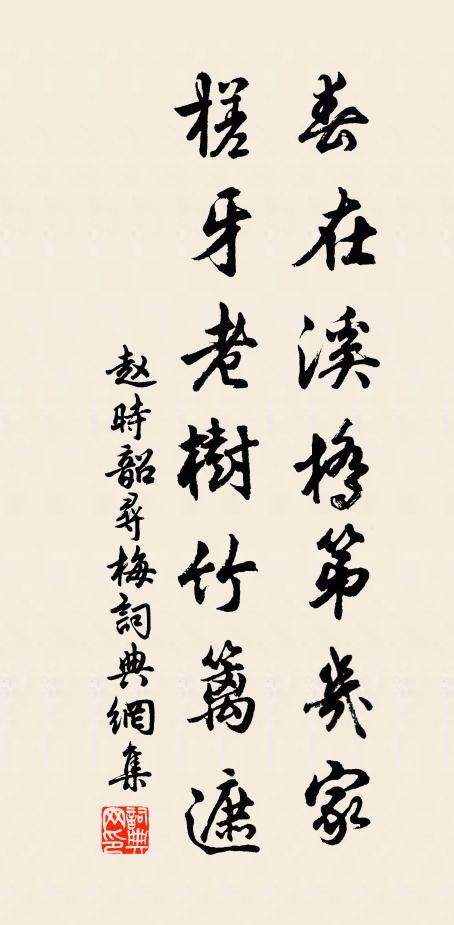 春在溪橋第幾家
槎牙老樹竹籬遮
赵時韶尋梅詞典網集
詞典网印